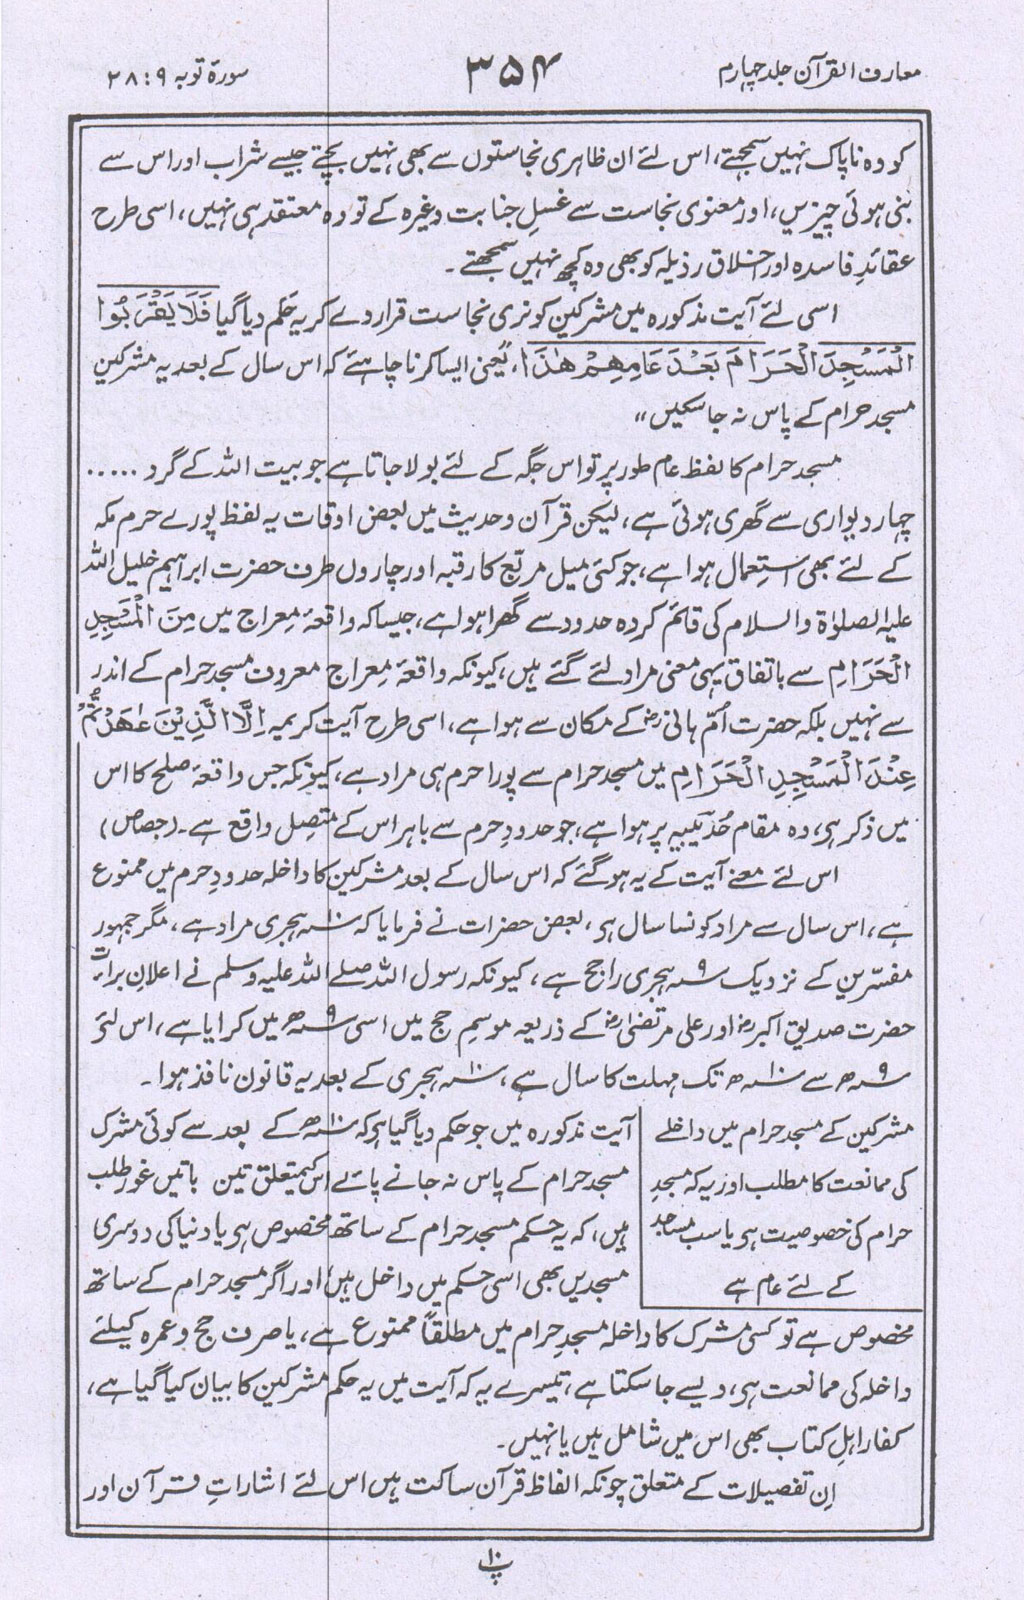 معارف القرآن جلد چہارم
۳۵۴
سورۃ توبہ ۹ : ۲۸
کو وہ ناپاک نہیں سمجھتے، اس لئے ان ظاہری نجاستوں سے بھی نہیں بچتے جیسے شراب اور اس سے
بنی ہوئی چیزیں، اور معنوی نجاست سے غسلِ جنابت وغیرہ کے تو وہ معتقد ہی نہیں، اسی طرح
عقائدِ فاسدہ اور اخلاق رذیلہ کو بھی وہ کچھ نہیں سمجھتے۔
اسی لئے آیت مذکورہ میں مشرکین کو نری نجاست قرار دے کر یہ حکم دیا گیا فَلَا يَقْرَبُوا
الْمَسْجِدَ الْحَرَامَ بَعْدَ عَامِهِمْ هٰذَا، ”یعنی ایسا کرنا چاہئے کہ اس سال کے بعد یہ مشرکین
مسجد حرام کے پاس نہ جا سکیں“
مسجد حرام کا لفظ عام طور پر تو اس جگہ کے لئے بولا جاتا ہے جو بیت اللہ کے گرد .....
چہار دیواری سے گھری ہوئی ہے، لیکن قرآن و حدیث میں بعض اوقات یہ لفظ پورے حرم مکہ
کے لئے بھی استعمال ہوا ہے، جو کئی میل مربّع کا رقبہ اور چاروں طرف حضرت ابراہیم خلیل اللہ
علیہ الصلوٰۃ والسلام کی قائم کردہ حدود سے گھرا ہوا ہے، جیسا کہ واقعۂ معراج میں مِنَ الْمَسْجِدِ
الْحَرَامِ سے باتفاق یہی معنی مراد لئے گئے ہیں، کیونکہ واقعۂ معراج معروف مسجد حرام کے اندر
سے نہیں بلکہ حضرت اُمّ ہانی رض کے مکان سے ہوا ہے، اسی طرح آیت کریمہ اِلَّا الَّذِيْنَ عٰهَدْتُّمْ
عِنْدَ الْمَسْجِدِ الْحَرَامِ میں مسجد حرام سے پورا حرم ہی مراد ہے، کیونکہ جس واقعۂ صلح کا اس
میں ذکر ہی، وہ مقام حُدَیبیہ پر ہوا ہے، جو حدودِ حرم سے باہر اس کے متصل واقع ہے۔ (جصاص)
اس لئے معنے آیت کے یہ ہو گئے کہ اس سال کے بعد مشرکین کا داخلہ حدودِ حرم میں ممنوع
ہے، اس سال سے مراد کونسا سال ہی، بعض حضرات نے فرمایا کہ سنہ ۱۰ ہجری مراد ہے، مگر جمہور
مفسّرین کے نزدیک سنہ ۹ ہجری راجح ہے، کیونکہ رسول اللہ صلے اللہ علیہ وسلم نے اعلانِ براءت
حضرت صدیق اکبر رض اور علی مرتضیٰ رض کے ذریعہ موسمِ حج میں اسی سنہ ۹ھ میں کرایا ہے، اس لئے
سنہ ۹ھ سے سنہ ۱۰ھ تک مہلت کا سال ہے، سنہ ۱۰ ہجری کے بعد یہ قانون نافذ ہوا۔
مشرکین کے مسجد حرام میں داخلے
کی ممانعت کا مطلب اور یہ کہ مسجدِ
حرام کی خصوصیت ہی یا سب مساجد
کے لئے عام ہے
آیت مذکورہ میں جو حکم دیا گیا ہو کہ سنہ ۱۰ھ کے بعد سے کوئی مشرک
مسجد حرام کے پاس نہ جانے پائے اس کے متعلق تین باتیں غور طلب
ہیں، کہ یہ حکم مسجد حرام کے ساتھ مخصوص ہی یا دنیا کی دوسری
مسجدیں بھی اسی حکم میں داخل ہیں، اور اگر مسجد حرام کے ساتھ
مخصوص ہے تو کسی مشرک کا داخلہ مسجدِ حرام میں مطلقاً ممنوع ہے، یا صرف حج و عمرہ کیلئے
داخلہ کی ممانعت ہی، ویسے جا سکتا ہے، تیسرے یہ کہ آیت میں یہ حکم مشرکین کا بیان کیا گیا ہے،
کفار اہلِ کتاب بھی اس میں شامل ہیں یا نہیں۔
اِن تفصیلات کے متعلق چونکہ الفاظ قرآن ساکت ہیں اس لئے اشاراتِ قرآن اور
پ ۱۰